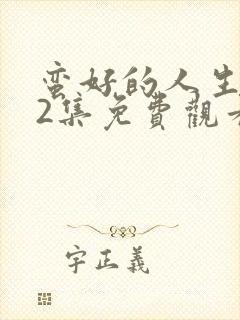 蛮好的人生
2集免費觀看
字正義